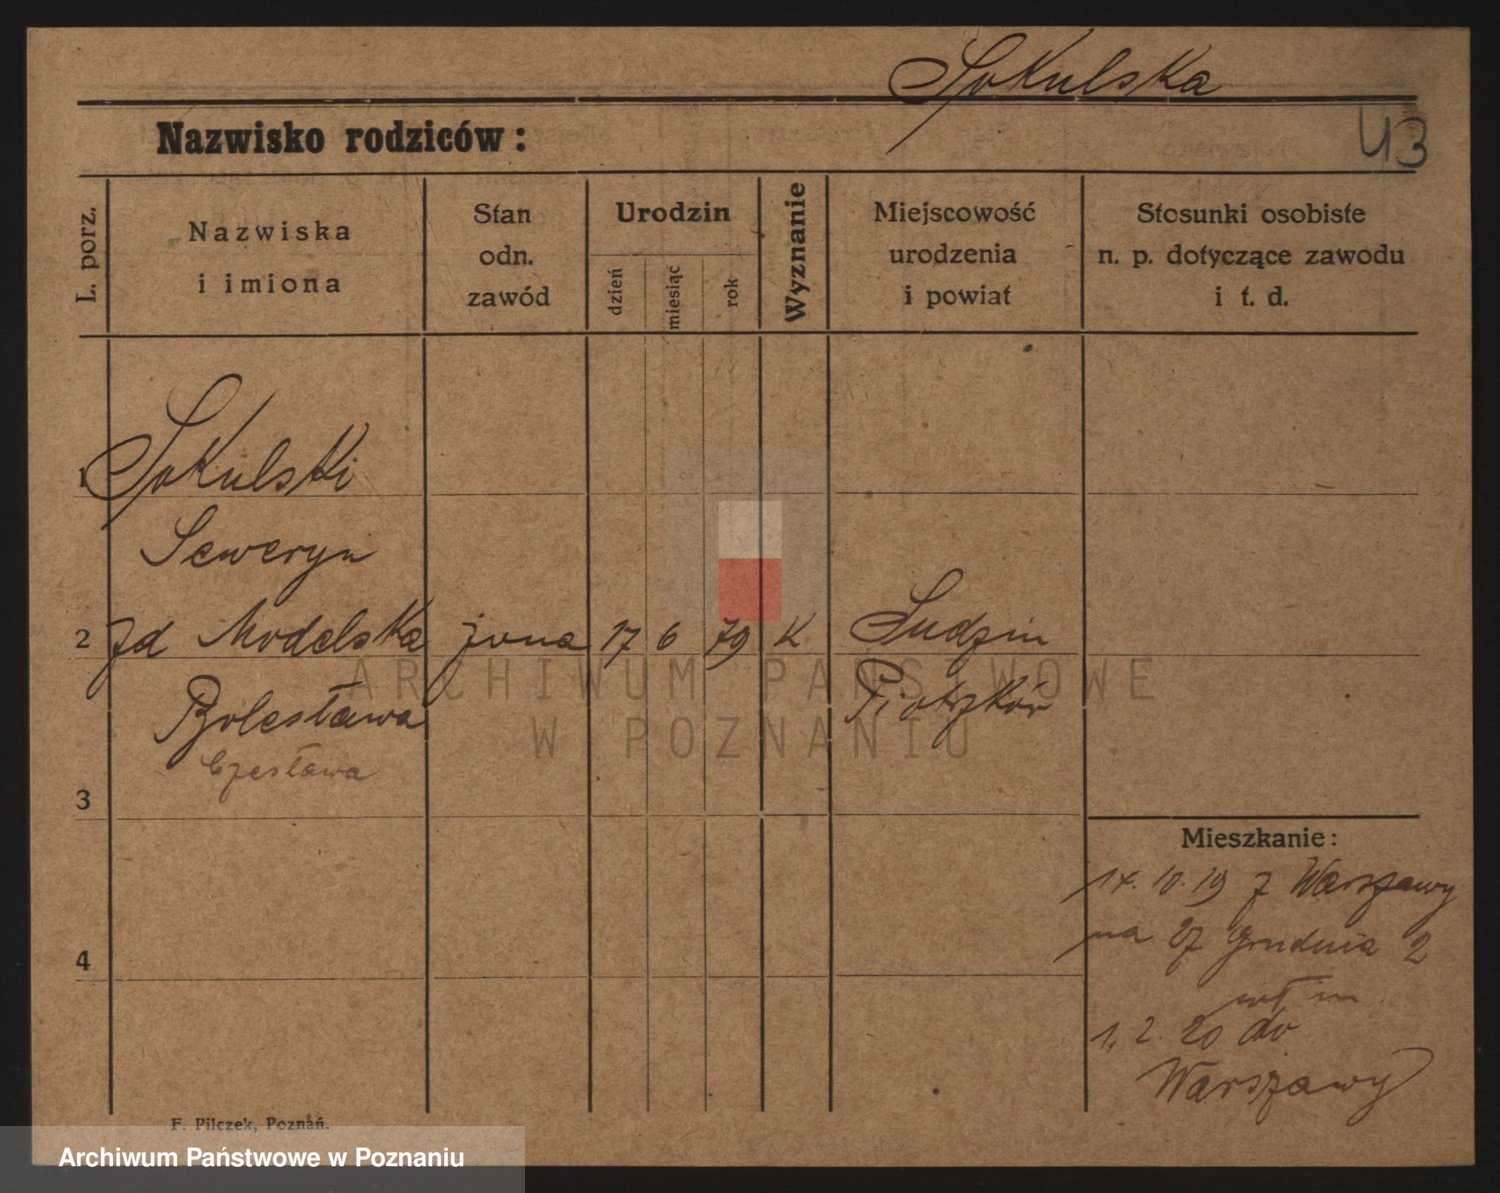 Sokulska
43
Nazwisko rodziców:
L. porz.
Nazwiska
i imiona
Stan
odn.
zawód
Urodzin
dzień
miesiąc
rok
Wyznanie
Miejscowość
urodzenia
i powiat
Stosunki osobiste
n. p. dotyczące zawodu
i t. d.
1 Sokulski
Seweryn
2 zd Modelska żona 17 6 79 K Sudzin
Bolesława Piotrków
Czesława
3
4
Mieszkanie:
14. 10. 19 z Warszawy
na 27 Grudnia 2
1. 2. 20 do
Warszawy
F. Pilczek, Poznań.
ARCHIWUM PAŃSTWOWE
W POZNANIU
Archiwum Państwowe w Poznaniu